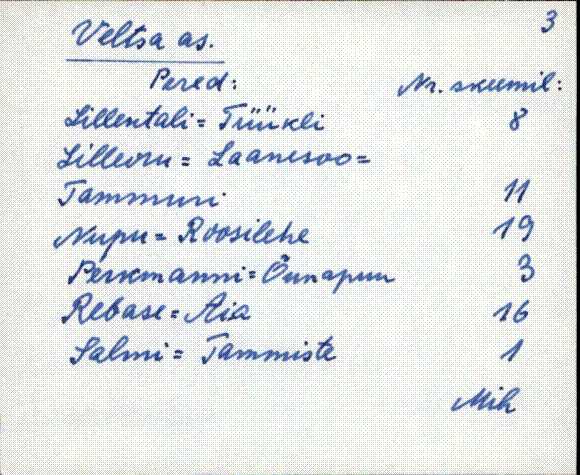 3
Veltsa as.
Pered: Nr. skeemil:
Lillentali = Trüükli 8
Lilleoru = Laanesoo =
Tammuri 11
Nupu = Roosilehe 19
Perkmanni = Õunapuu 3
Rebase = Aia 16
Salmi = Tammiste 1
Mih